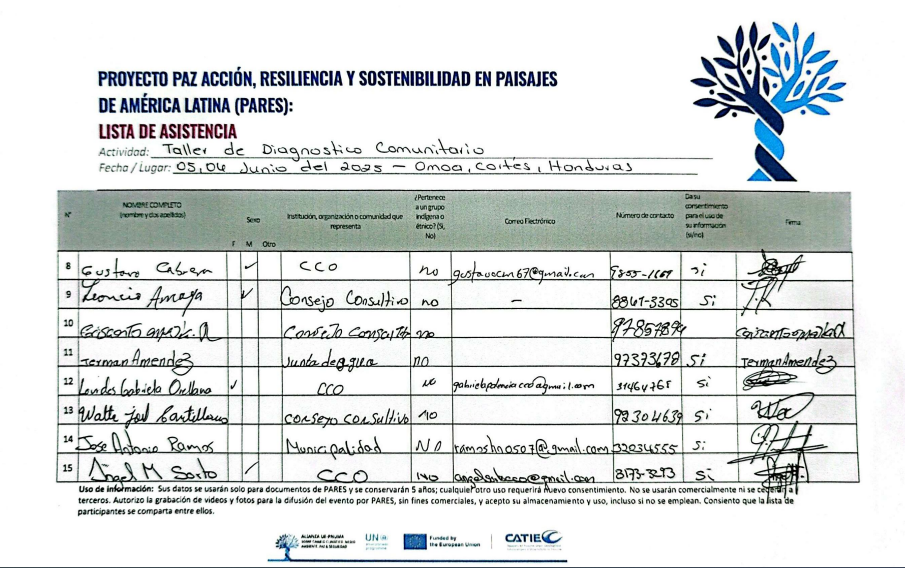 PROYECTO PAZ ACCIÓN, RESILIENCIA Y SOSTENIBILIDAD EN PAISAJES
DE AMÉRICA LATINA (PARES):
LISTA DE ASISTENCIA
Actividad: Taller de Diagnostico Comunitario
Fecha / Lugar: 05,06 Junio del 2025 – Omoa, Cortés, Honduras
N° NOMBRE COMPLETO (nombre y dos apellidos) Sexo F M Otro Institución, organización o comunidad que representa ¿Pertenece a un grupo indígena o étnico? (Si, No) Correo Electrónico Número de contacto Da su consentimiento para el uso de su información (si/no) Firma
8 Gustavo Cabrera ✓ CCO no gustavocm67@gmail.com 9855-1167 si
9 Leoncio Amaya ✓ Consejo Consultivo no – 8861-3395 Si
10 Consejo no 97857894
11 Jerman Amendez Junta de agua no 97373678 Si Jerman Amendez
12 Gabriela Orellana ✓ CCO no 31464765 si
13 Joel Castellanos consejo consultivo no 92304639 si
14 Jose Antonio Ramos Municipalidad NO ramoshn0507@gmail.com 32034555 si
15 Angel M ✓ CCO no 8173-3293 Si
Uso de información: Sus datos se usarán solo para documentos de PARES y se conservarán 5 años; cualquier otro uso requerirá nuevo consentimiento. No se usarán comercialmente ni se cederán a
terceros. Autorizo la grabación de videos y fotos para la difusión del evento por PARES, sin fines comerciales, y acepto su almacenamiento y uso, incluso si no se emplean. Consiento que la lista de
participantes se comparta entre ellos.
UN
Funded by
the European Union
CATIE